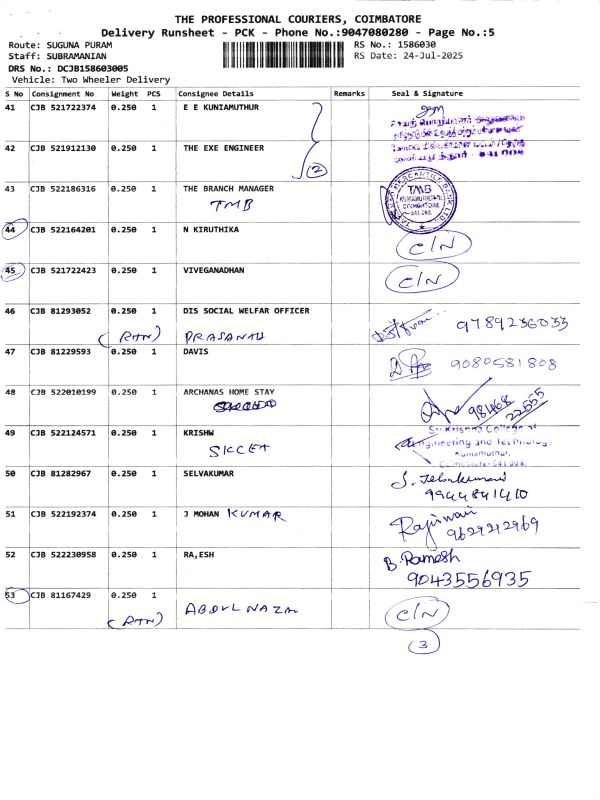 THE PROFESSIONAL COURIERS, COIMBATORE
Delivery Runsheet - PCK - Phone No.:9047080280 - Page No.:5
Route: SUGUNA PURAM RS No.: 1586030
Staff: SUBRAMANIAN RS Date: 24-Jul-2025
DRS No.: DCJB158603005
Vehicle: Two Wheeler Delivery
S No Consignment No Weight PCS Consignee Details Remarks Seal & Signature
41 CJB 521722374 0.250 1 E E KUNIAMUTHUR
42 CJB 521912130 0.250 1 THE EXE ENGINEER
2
641 008
43 CJB 522186316 0.250 1 THE BRANCH MANAGER
TMB
TMB
COIMBATORE
44 CJB 522164201 0.250 1 N KIRUTHIKA
C/N
45 CJB 521722423 0.250 1 VIVEGANADHAN
C/N
46 CJB 81293052 0.250 1 DIS SOCIAL WELFAR OFFICER
(RTN) 9789236033
47 CJB 81229593 0.250 1 DAVIS
9080581808
48 CJB 522010199 0.250 1 ARCHANAS HOME STAY
98468 22555
49 CJB 522124571 0.250 1 KRISHW
SKCET
Sri Krishna College of
Engineering and Technology
Kuniamuthur,
Coimbatore-641 008
50 CJB 81282967 0.250 1 SELVAKUMAR
9944841410
51 CJB 522192374 0.250 1 J MOHAN KUMAR
9629212969
52 CJB 522230958 0.250 1 RA,ESH
B. Ramesh
9043556935
53 CJB 81167429 0.250 1
(RTN) ABDUL NAZAR
C/N
3